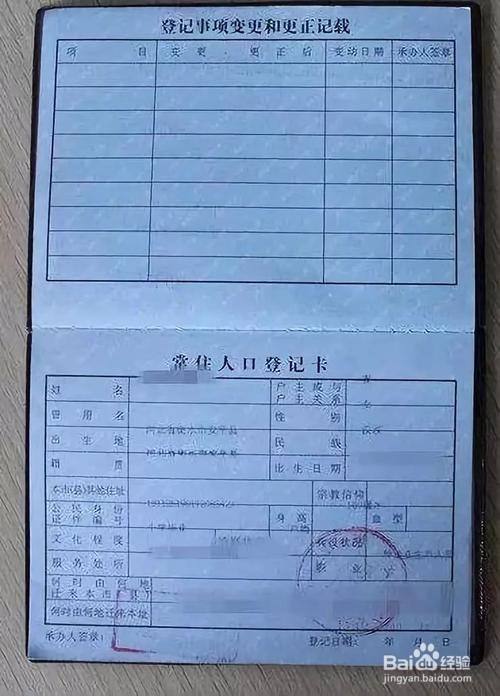 登记事项变更和更正记载
项 目 变 更 、 更 正 后 变动日期 承办人签章
常 住 人 口 登 记 卡
姓 名 户 主 或 与 户 主 关 系
曾 用 名 性 别 女
出 生 地 河北省衡水市安平县 民 族 汉族
籍 贯 出 生 日 期
本市(县)其他住址 宗教信仰
公 民 身 份 证 件 编 号 身 高 血 型
文 化 程 度 小学毕业 婚姻状况
服 务 处 所 职 业
何 时 由 何 地 迁 来 本 市 ( 县 )
何时由何地迁来本址
承办人签章: 登记日期: 年 月 日
Baidu 经验
jingyan.baidu.com